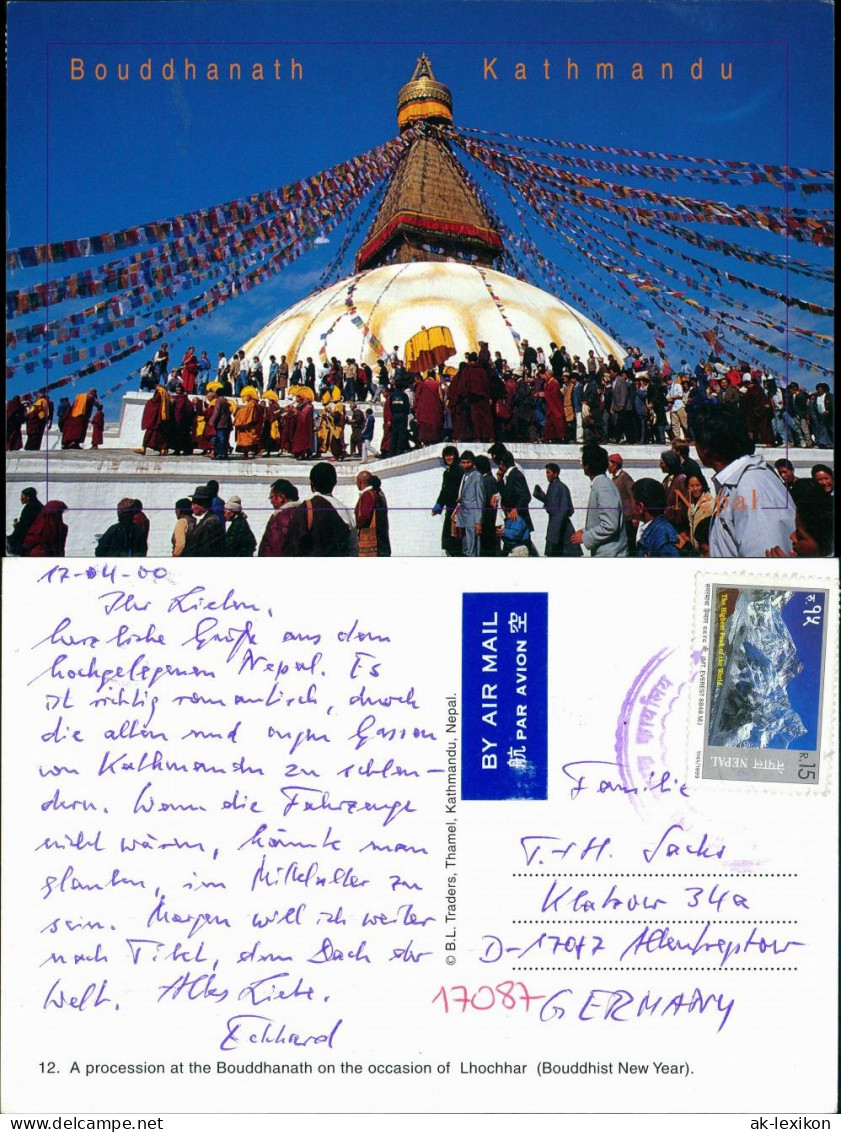 Bouddhanath Kathmandu
Nepal
17-04-00
Ihr Lieben,
herzliche Grüße aus dem
hochgelegenen Nepal. Es
ist richtig romantisch, durch
die alten und engen Gassen
von Kathmandu zu schlen-
dern. Wenn die Fahrzeuge
nicht wären, könnte man
glauben, im Mittelalter zu
sein. Morgen will ich weiter
nach Tibet, dem Dach der
Welt. Alles Liebe.
Eckhard
© B.L. Traders, Thamel, Kathmandu, Nepal.
BY AIR MAIL
航 PAR AVION 空
कार्यालय
The Highest Peak of the World.
MT. EVEREST 8848 M.)
रु १५
NEPAL नेपाल
R.15
Familie
T.+H. Sacks
Klatzow 34a
D-17087 Altentreptow
17087 GERMANY
12. A procession at the Bouddhanath on the occasion of Lhochhar (Bouddhist New Year).
www.ansichtskarten-lexikon.de
ak-lexikon